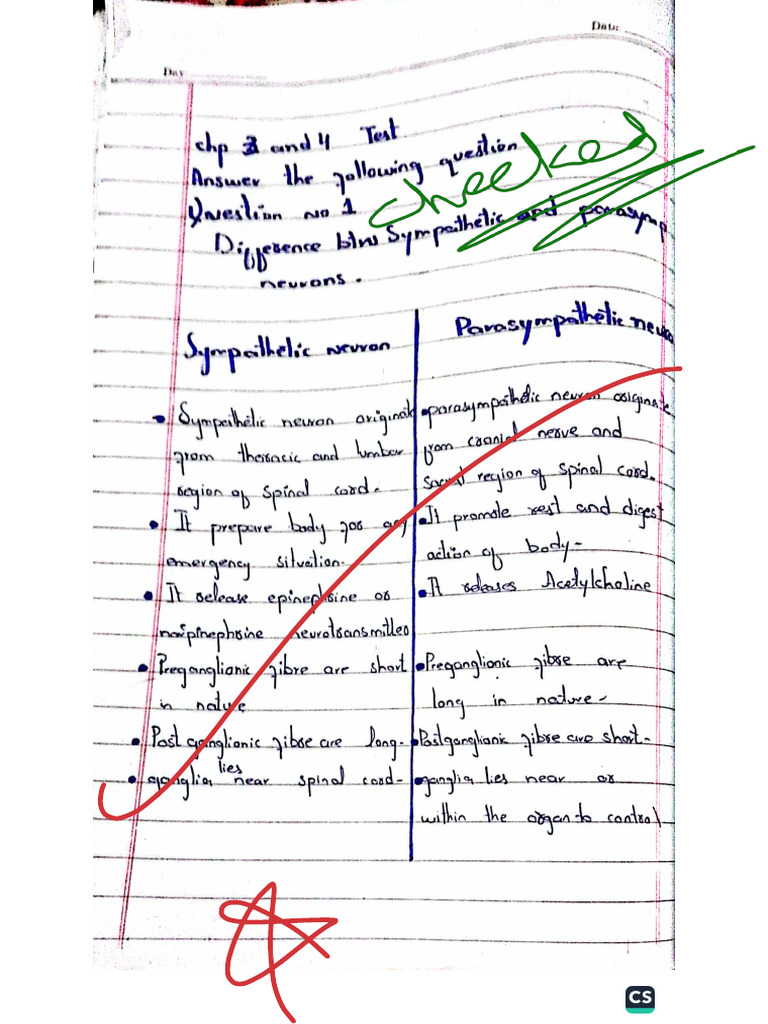 Date
Day
Chp 3 and 4 Test
Answer the following question
checked
Question no 1
Difference btw Sympathetic and parasymp
neurons.
Sympathetic neuron
Parasympathetic neuro
• Sympathetic neuron originate
from thoracic and lumbar
region of spinal cord.
• It prepare body for any
emergency situation.
• It release epinephrine or
norpinephrine neurotransmitter
• Preganglionic fibre are short
in nature
• Post ganglionic fibre are long.
• ganglia lies near spinal cord.
• parasympathetic neuron originate
from cranial nerve and
sacral region of spinal cord.
• It promote rest and digest
action of body.
• It releases Acetylcholine
• Preganglionic fibre are
long in nature.
• Postganglionic fibre are short.
• ganglia lies near or
within the organ to control
CS